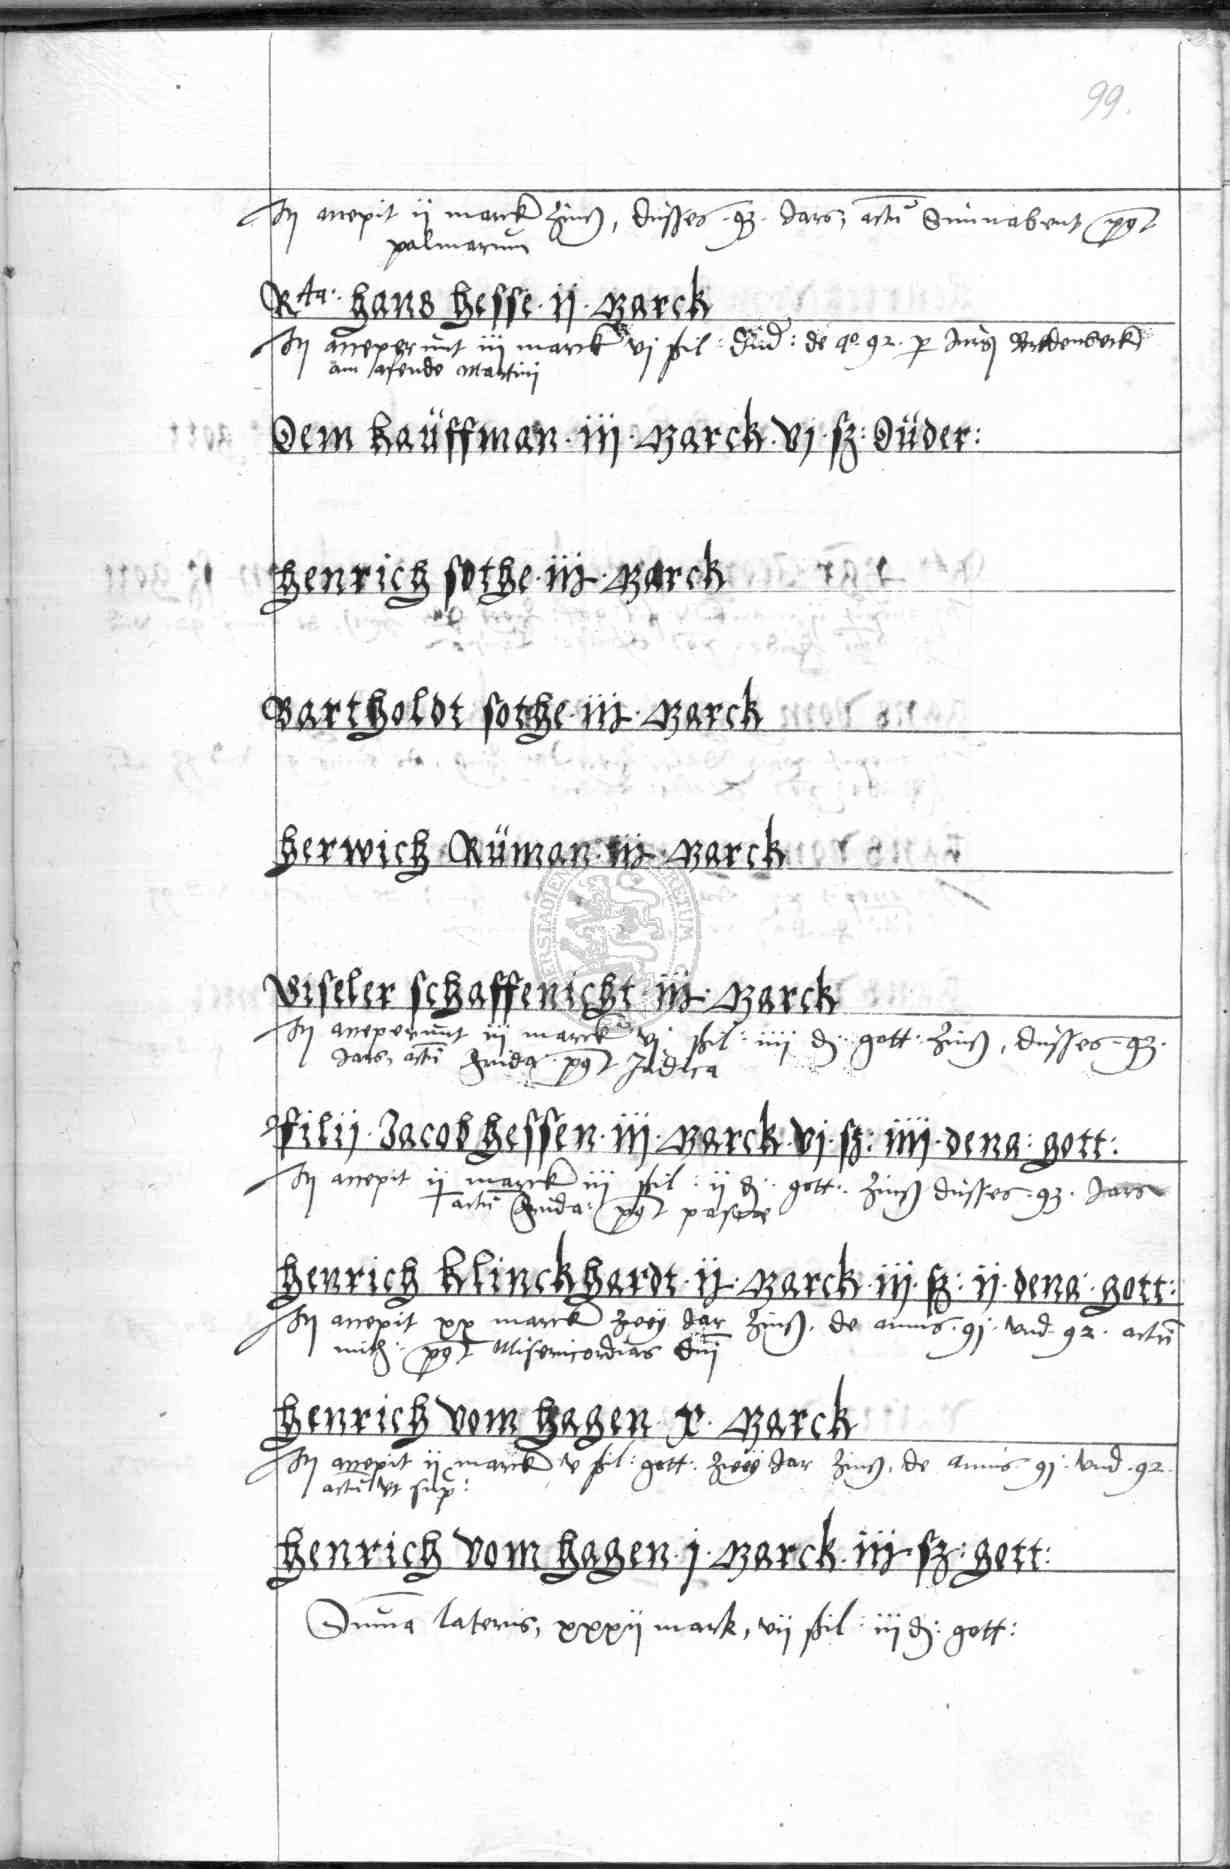 99.
accepit ij marck Zinß, dusses 93. Jars, actu Sunnabent post
palmarum
Rta: hans hesse · ij · Marck
acceperunt iij marck vj ßil: Dud: de ao 92. per Jurgen
am afende Martini
Dem kaüffman · iij · Marck · vj · ß: Düder:
henrich sothe · iij · Marck
Bartholdt sothe · iij · Marck
herwich Rüman · iij · Marck
Viseler schaffenicht · iij · Marck
acceperunt iij marck vj ßil: iiij d: gott: Zinß, dusses 93.
Jars, actu frida: post Judica
filij · Jacob hessen · iij · Marck · vj · ß: iiij · dena: gott:
accepit ij marck iij ßil: ij d: gott: Zinß dusses 93. Jars
actu frida: post pasce
henrich klinckhardt · ij · Marck · iij · ß: ij · dena: gott:
accepit xx marck zwey Jar Zinß. de annis 91. vnd 92. actu
mith: post Misericordias dni
henrich vom hagen · x · Marck
accepit ij marck v ßil: gott: zwey Jar Zinß, de annis 91. vnd 92.
actu vt sup:
henrich vom hagen · j · Marck · iij · ß: gott:
Suma lateris, xxxij mark, vij ßil: iij d: gott: